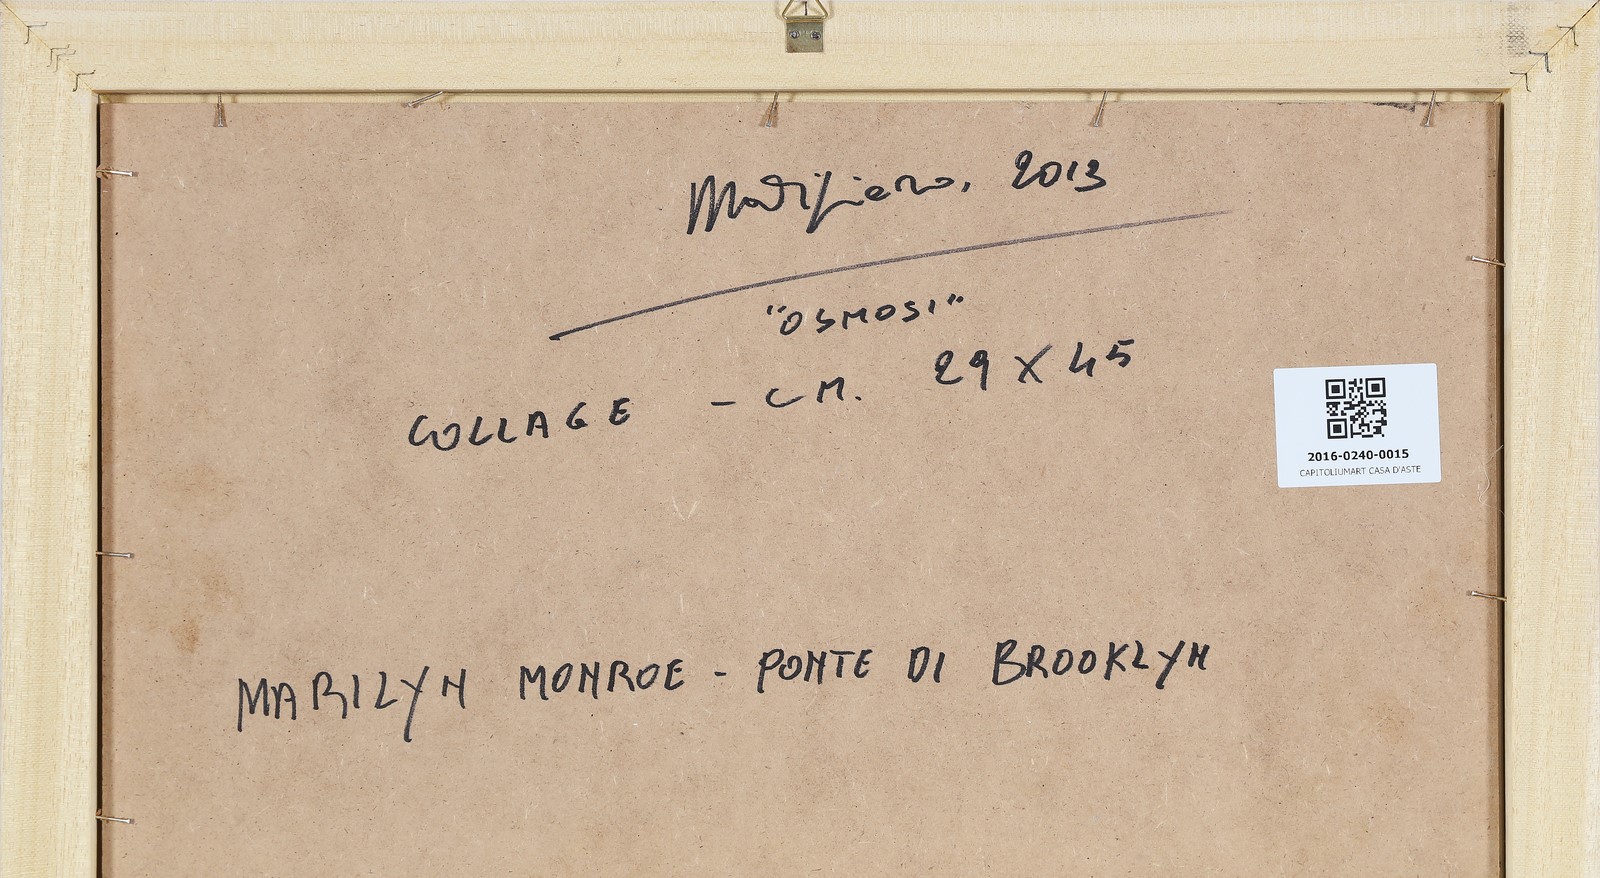 2013
"OSMOSI"
COLLAGE - CM. 29 X 45
2016-0240-0015
CAPITOLIUMART CASA D'ASTE
MARILYN MONROE - PONTE DI BROOKLYN